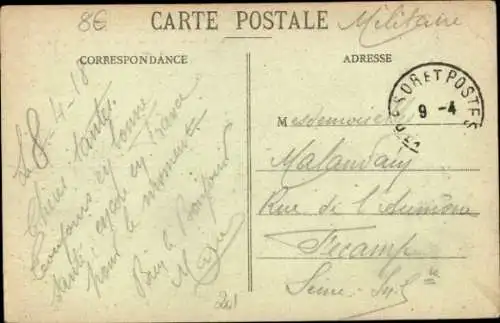 8E
CARTE POSTALE
Militaire
CORRESPONDANCE
ADRESSE
Le 8-4-18
Chères tantes.
Toujours en bonne
santé et en France
pour le moment.
Bien le Bonjour
TRESOR ET POSTES
9-4
Mesdemoiselles
Malandain
Rue de l'Aumône
Fécamp
Seine-Infre
201